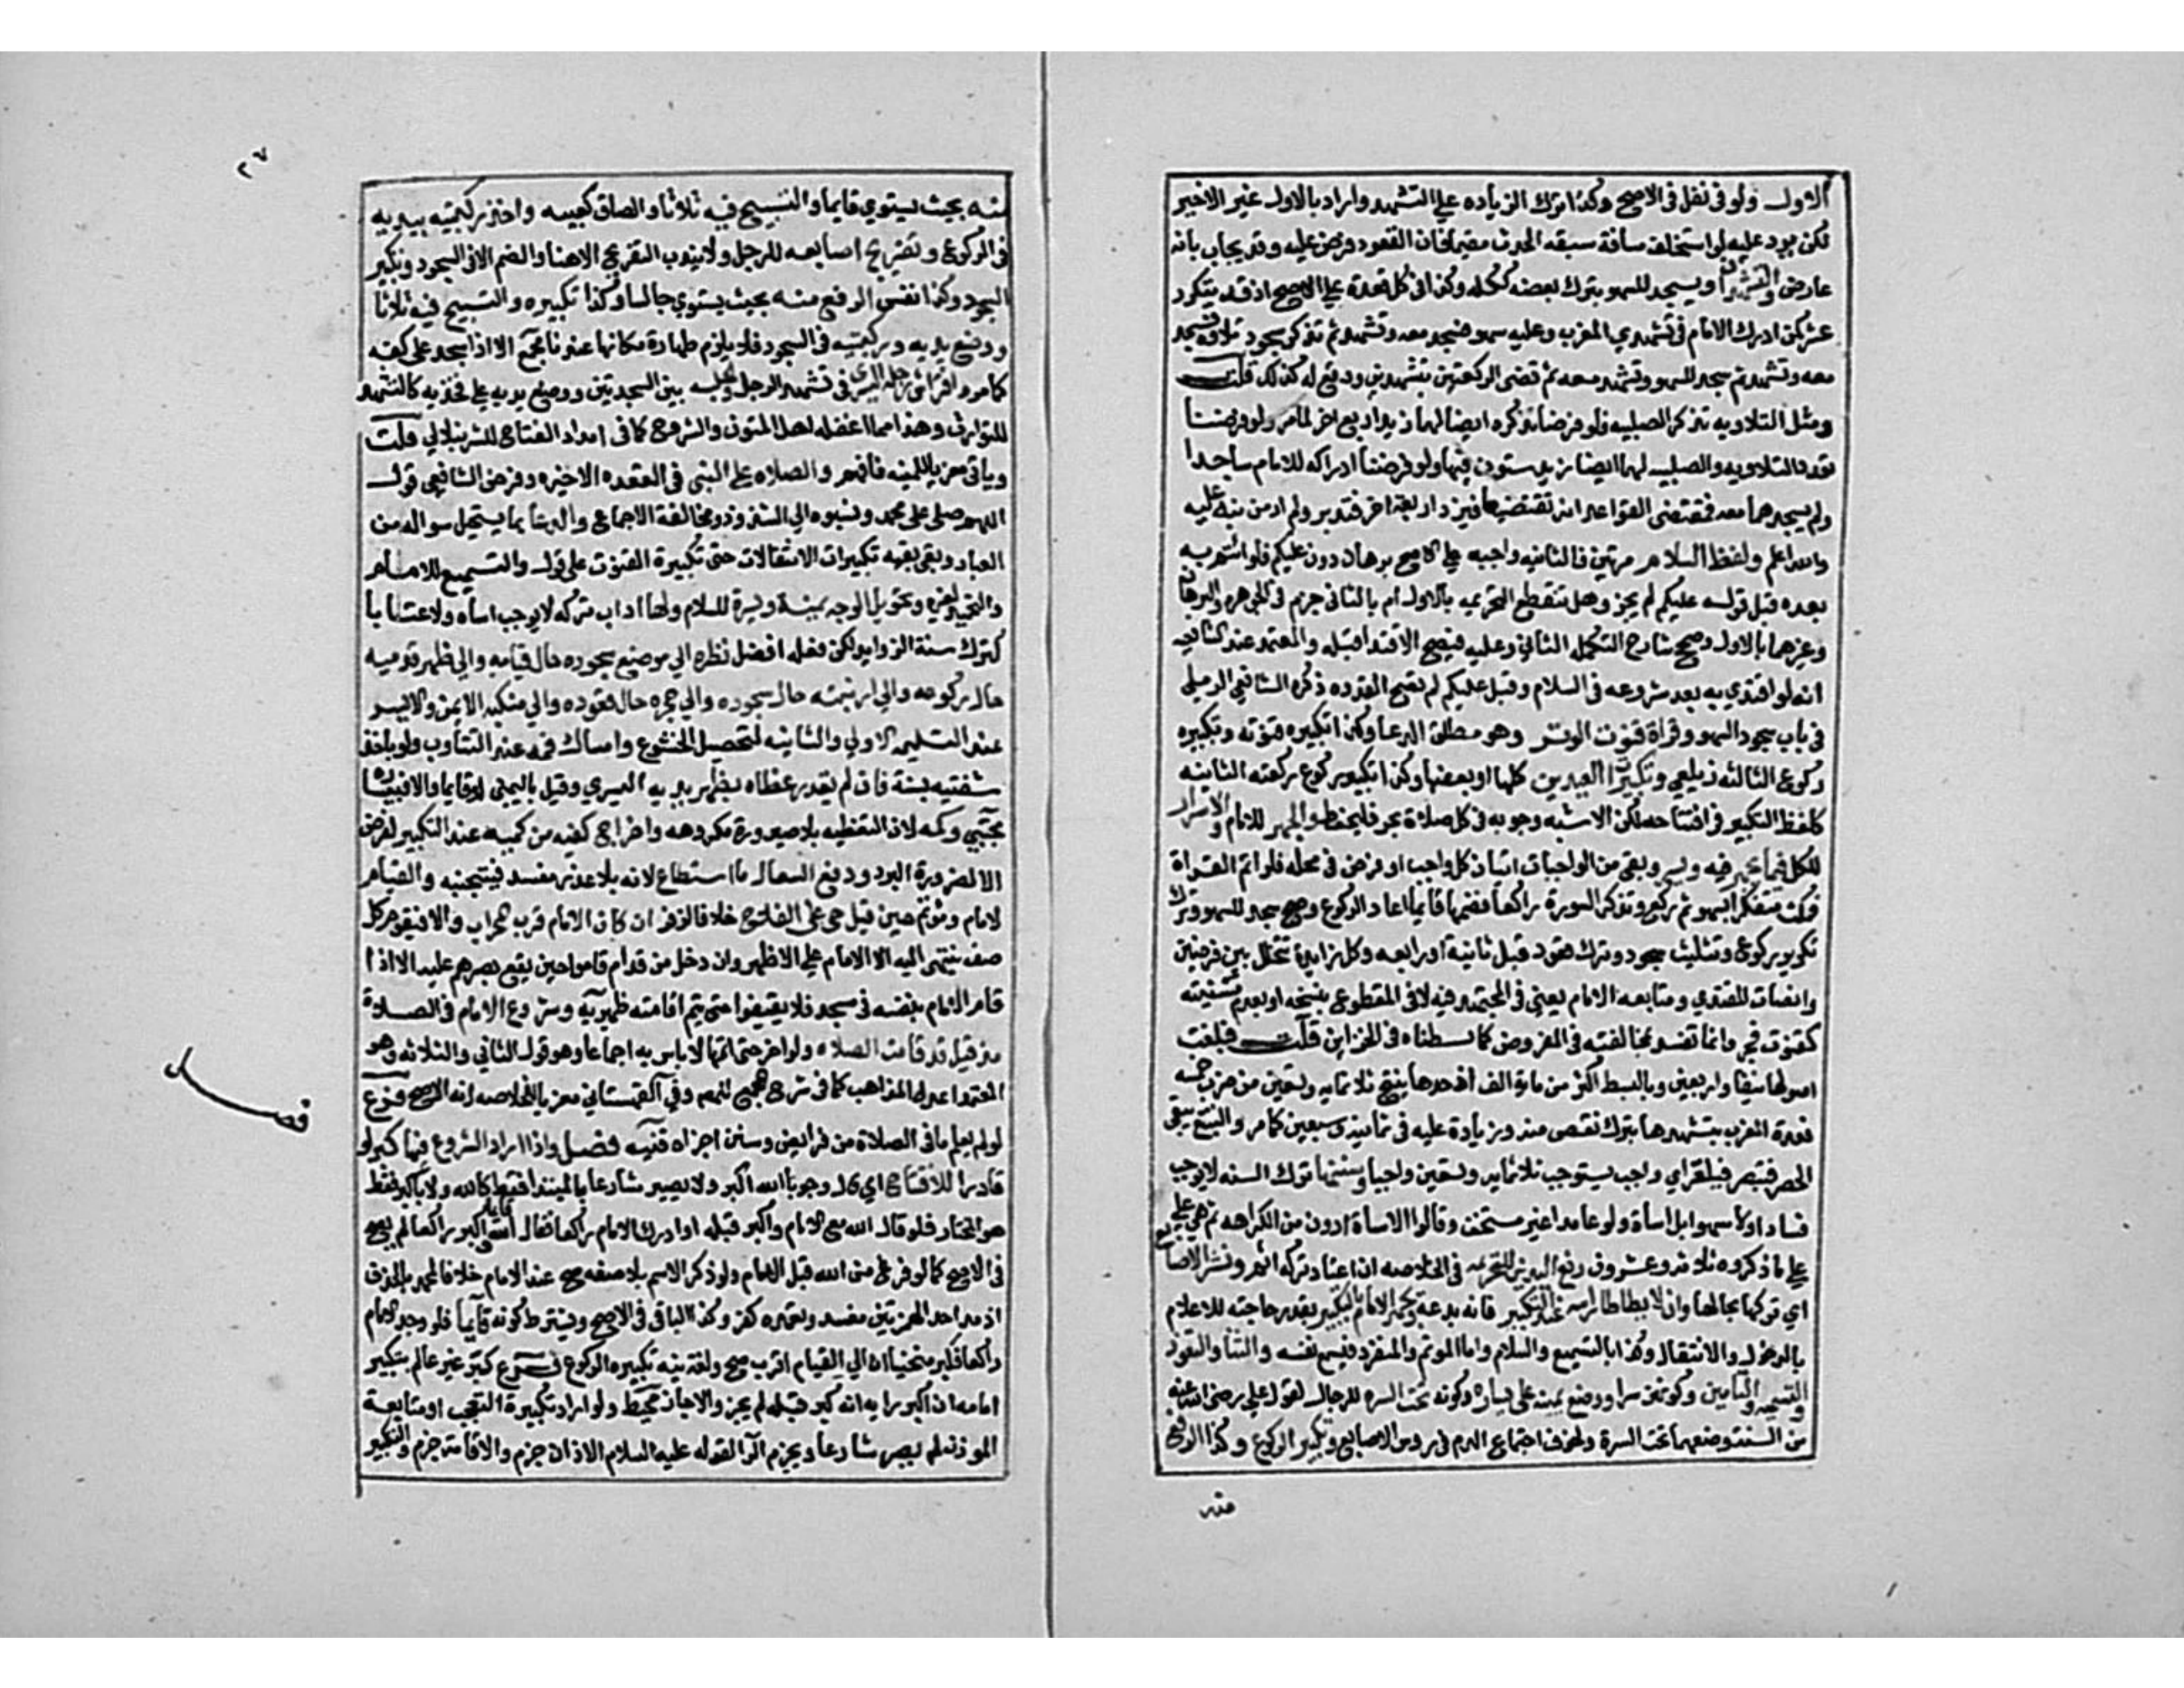 الاول ولو فى نفل فى الاصح وكذا ترك الزياده علي التشهد واراد بالاول غير الاخير
لكن يرد عليه لو استخلف مسافة سبقه الحدث مقيما فان القعود فرض عليه وقد يجاب بانه
عارض والتشهدان ويسجد للسهو بترك بعضه ككله وكذا فى كل قعدة علي الاصح اذ قد يتكرر
عشر كمن ادرك الامام فى تشهدي المغرب وعليه سهو فسجد معه وتشهد ثم تذكر سجود تلاوة فسجد
معه وتشهد ثم سجد للسهو وتشهد معه ثم قضى الركعتين بتشهدين ووقع له كذلك قلت
ومثل التلاويه تذكر الصلبيه فلو فرضنا تذكره ايضا لهما زيد اربع اخر لما مر ولو فرضنا
تعدد التلاويه والصلبيه لهما ايضا زيد ستون فيها ولو فرضنا ادراكه للامام ساجدا
ولم يسجدهما معه فمقتضى القواعد انه يقتضيهما فيزد اربعة اخر فتدبر ولم ار من نبه عليه
والله اعلم ولفظ السلام مرتين فالثانيه واجبه علي الاصح برهان دون عليكم فلو ائتم به
بعده قبل قوله عليكم لم يجز وهل تنقطع التحريمه بالاول ام بالثانى جزم فى الجوهره والبرهان
وغيرهما بالاول وصحح شارح التكمله الثاني وعليه فيصح الاقتدا قبله والمعتمد عند الشافعيه
انه لو اقتدي به بعد شروعه فى السلام وقبل عليكم لم تصح القدوه ذكره الشافعي الرملي
فى باب سجود السهو وقراة قنوت الوتر وهو مطلق الدعا وكذا تكبيره قنوته وتكبيره
ركوع الثالثه زيلعي وتكبيرات العيدين كلها او بعضها وكذا تكبير ركوع ركعته الثانيه
كلفظ التكبير فى افتتاحه لكن الاشبه وجوبه فى كل صلاة بحر فليحفظ والجهر للامام والاسرار
للكل فيما يجهر فيه ويسر وبقى من الواجبات اتيان كل واجب او فرض فى محله فلو اتم القراة
فمكث متفكرا سهوا ثم ركع وتذكر السورة راكعا فضمها قائما اعاد الركوع وصح سجد للسهو وترك
تكرير ركوع وتثليث سجود وترك قعود قبل ثانية او رابعه وكل زيادة تتخلل بين فرضين
وانصات المقتدي ومتابعه الامام يعني فى المجتهد فيه لا فى المقطوع بنسخه او بعدم سنيته
كقنوت فجر وانما تفسد بمخالفته فى الفروض كما بسطناه فى الخزاين قلت فبلغت
اصولها نيفا واربعين وبالبسط اكثر من ماية الف اذ احدها ينتج ثلاثمايه وتسعين من ضرب خمسه
قعدة المغرب بتشهدها بترك نقص منه وزيادة عليه فى ثمانية وسبعين كما مر والتتبع ينفى
الحصر فتبصر فيلغز اي واجب يستوجب ثلاثمايه وتسعين واجبا وسننها ترك السنه لا يوجب
فسادا ولا سهوا بل اساة ولو عامدا غير مستخف وقالوا الاساة ادون من الكراهه ثم هي علي
علي ما ذكروه ثلاثه وعشرون رفع اليدين للتحريمه فى الخلاصه ان اعتاد تركه اثم ونشر الاصابع
اي تركها بحالها وان لا يطاطا راسه عند التكبير فانه بدعة وجهر الامام بالتكبير بقدر حاجته للاعلام
بالدخول والانتقال وكذا بالتسميع والسلام واما الموتم والمنفرد فيسمع نفسه والثنا والتعوذ
والتسميه والتامين وكونهن سرا ووضع يمينه على يساره وكونه تحت السره للرجال لقول علي رضى الله عنه
من السنة وضعهما تحت السرة ولخوف اجتماع الدم فى روس الاصابع وتكبير الركوع وكذا الرفع
منه
٢٧
منه بحيث يستوي قايما والتسبيح فيه ثلاثا والصاق كعبيه واخذ ركبتيه بيديه
فى الركوع وتفريج اصابعه للرجل ولا يندب التفريج الا هنا والضم الا فى السجود وتكبير
السجود وكذا نفس الرفع منه بحيث يستوي جالسا وكذا تكبيره والتسبيح فيه ثلاثا
ووضع يديه وركبتيه فى السجود فلا يلزم طهارة مكانها عندنا مجمع الا اذا سجد على كفه
كما مر وافتراش رجله اليسرى فى تشهد الرجل والجلسه بين السجدتين ووضع يديه علي فخذيه كالتشهد
للتوارث وهذا مما اغفله اهل المتون والشروح كما فى امداد الفتاح للشرنبلالي قلت
وياتى معزيا للمنيه فافهم والصلاه علي النبى فى القعده الاخيره وفرض الشافعي قول
اللهم صلى على محمد ونسبوه الي الشذوذ ومخالفة الاجماع والدعا بما يستحيل سواله من
العباد وبقى بقيه تكبيرات الانتقالات حتى تكبيرة القنوت على قول والتسميع للامام
والتحميد لغيره وتحويل الوجه يمينة ويسرة للسلام ولها اداب تركه لا يوجب اساه ولا عتابا
كترك سنة الزوايد لكن فعله افضل نظره الي موضع سجوده حال قيامه والي ظهر قدميه
حال ركوعه والي ارنبته حال سجوده والي حجره حال قعوده والي منكبه الايمن والايسر
عند التسليمه الاولي والثانيه لتحصيل الخشوع وامساك فمه عند التثاوب ولو باخذ
شفتيه بسنه فان لم يقدر غطاه بظهر يديه اليسري وقيل باليمنى لو قايما والا فبيسراه
مجتبي وكمه لان التغطيه بلا ضرورة مكروهه واخراج كفيه من كميه عند التكبير لفرض
الا لضرورة البرد ودفع السعال ما استطاع لانه بلا عذر مفسد فيتجنبه والقيام
لامام وموتم حين قيل حي على الفلاح خلافا لزفر ان كان الامام قرب المحراب والا فيقوم كل
صف ينتهى اليه الامام علي الاظهر وان دخل من قدام قاموا حين يقع بصرهم عليه الا اذا
قام الامام بنفسه فى مسجد فلا يقيفوا حتى يتم اقامته ظهيريه وشروع الامام فى الصلاة
مذ قيل قد قامت الصلاه ولو اخر حتى اتمها لا باس به اجماعا وهو قول الثاني والثلاثه وهو
اعدل المذاهب كما فى شرح المجمع لمصنفه وفي القهستاني معزيا للخلاصه انه الاصح فرع
لو لم يعلم ما فى الصلاة من فرايض وسنن اجزاه قنيه فصل واذا اراد الشروع فيها كبر لو
قادرا للافتتاح اي قال وجوبا الله اكبر ولا يصير شارعا بالمبتدا فقط كالله ولا باكبر فقط
هو المختار فلو قال الله مع الامام واكبر قبله او ادرك الامام راكعا فقال الله قايما اكبر راكعا لم يصح
فى الاصح كما لو فرغ من الله قبل الامام ولو ذكر الاسم بلا صفه صح عند الامام خلافا لمحمد بالحذف
اذ مد احد الهمزتين مفسد وتعمده كفر وكذا الباقى فى الاصح ويشترط كونه قائما فلو وجد الامام
راكعا فكبر منحنيا ان الي القيام اقرب صح ولغت نيه تكبيره الركوع فروع كبر غير عالم بتكبير
امامه ان اكبر رايه انه كبر قبله لم يجز والا جاز محيط ولو اراد تكبيرة التعجب او متابعة
الموذن لم يصر شارعا ويجزم الرا لقوله عليه السلام الاذان جزم والاقامة جزم والتكبير
فصل